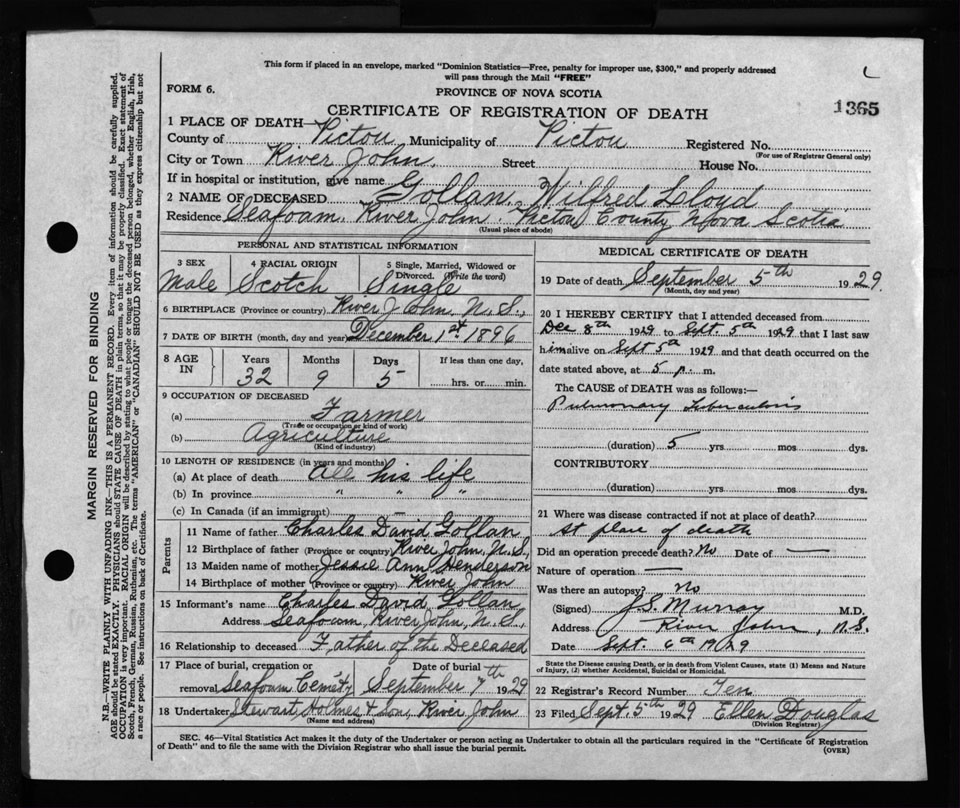 This form if placed in an envelope, marked "Dominion Statistics—Free, penalty for improper use, $300," and properly addressed
will pass through the Mail "FREE"
FORM 6.
PROVINCE OF NOVA SCOTIA
CERTIFICATE OF REGISTRATION OF DEATH
1365
1 PLACE OF DEATH—
County of Pictou Municipality of Pictou Registered No.
(For use of Registrar General only)
City or Town River John, Street House No.
If in hospital or institution, give name
2 NAME OF DECEASED Gollan, Wilfred Lloyd
Residence Seafoam, River John, Pictou County Nova Scotia
(Usual place of abode)
PERSONAL AND STATISTICAL INFORMATION
3 SEX 4 RACIAL ORIGIN 5 Single, Married, Widowed or
Divorced. (Write the word)
Male Scotch Single
6 BIRTHPLACE (Province or country) River John, N.S.,
7 DATE OF BIRTH (month, day and year) December 1st. 1896
8 AGE IN Years Months Days If less than one day,
32 9 5 hrs. or min.
9 OCCUPATION OF DECEASED
(a) Farmer
(Trade or occupation or kind of work)
(b) Agriculture
(Kind of industry)
10 LENGTH OF RESIDENCE (in years and months)
(a) At place of death All his life
(b) In province " " "
(c) In Canada (if an immigrant) —
Parents
11 Name of father Charles David Gollan
12 Birthplace of father (Province or country) River John, N.S.,
13 Maiden name of mother Jessie Ann Henderson
14 Birthplace of mother (Province or country) River John
15 Informant's name Charles David Gollan
Address Seafoam, River John, N.S,
16 Relationship to deceased Father of the Deceased
17 Place of burial, cremation or Date of burial
removal Seafoam Cemety September 7th 1929
18 Undertaker Stewart, Holmes & Son, River John
(Name and address)
MEDICAL CERTIFICATE OF DEATH
19 Date of death September 5th 1929.
(Month, day and year)
20 I HEREBY CERTIFY that I attended deceased from
Dec 8th 1929 to Sept. 5th 1929 that I last saw
him alive on Sept 5th 1929 and that death occurred on the
date stated above, at 5 p. m.
The CAUSE of DEATH was as follows:—
Pulmonary Tuberculosis
(duration) 5 yrs. mos dys.
CONTRIBUTORY
(duration) yrs. mos dys.
21 Where was disease contracted if not at place of death?
at place of death
Did an operation precede death? No Date of —
Nature of operation —
Was there an autopsy? No
(Signed) J.S. Murray M.D.
Address River John, N.S.
Date Sept. 6th 1929
State the Disease causing Death, or in death from Violent Causes, state (1) Means and Nature
of Injury, (2) whether Accidental, Suicidal or Homicidal.
22 Registrar's Record Number Ten
23 Filed Sept. 5th 1929 Ellen Douglas
(Division Registrar)
SEC. 46—Vital Statistics Act makes it the duty of the Undertaker or person acting as Undertaker to obtain all the particulars required in the "Certificate of Registration
of Death" and to file the same with the Division Registrar who shall issue the burial permit.
(OVER)
MARGIN RESERVED FOR BINDING
N.B.—WRITE PLAINLY WITH UNFADING INK—THIS IS A PERMANENT RECORD. Every item of information should be carefully supplied.
AGE should be stated EXACTLY. PHYSICIANS should STATE CAUSE OF DEATH in plain terms, so that it may be properly classified. Exact statement of
OCCUPATION is very important. RACIAL ORIGIN will be described by stating to what people or tongue the deceased person belonged, whether English, Irish,
Scotch, French, German, Russian, Ruthenian, etc. The terms "AMERICAN" or "CANADIAN" SHOULD NOT BE USED as they express citizenship but not
a race or people. See instructions on back of Certificate.